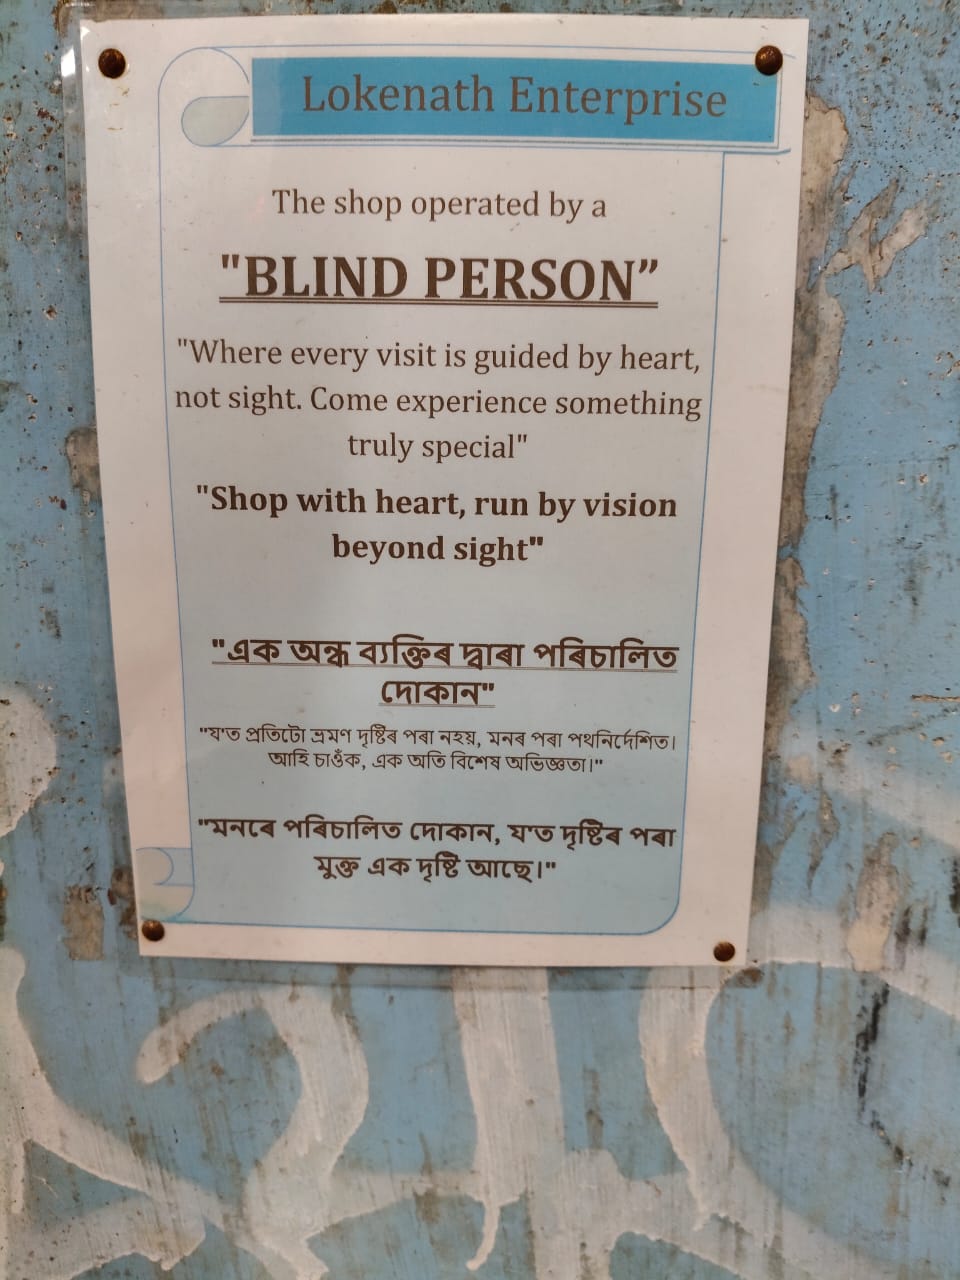 Lokenath Enterprise
The shop operated by a
"BLIND PERSON”
"Where every visit is guided by heart,
not sight. Come experience something
truly special"
"Shop with heart, run by vision
beyond sight"
"এক অন্ধ ব্যক্তিৰ দ্বাৰা পৰিচালিত
দোকান"
"য'ত প্ৰতিটো ভ্ৰমণ দৃষ্টিৰ পৰা নহয়, মনৰ পৰা পথনিৰ্দেশিত।
আহি চাওঁক, এক অতি বিশেষ অভিজ্ঞতা।"
"মনৰে পৰিচালিত দোকান, য'ত দৃষ্টিৰ পৰা
মুক্ত এক দৃষ্টি আছে।"